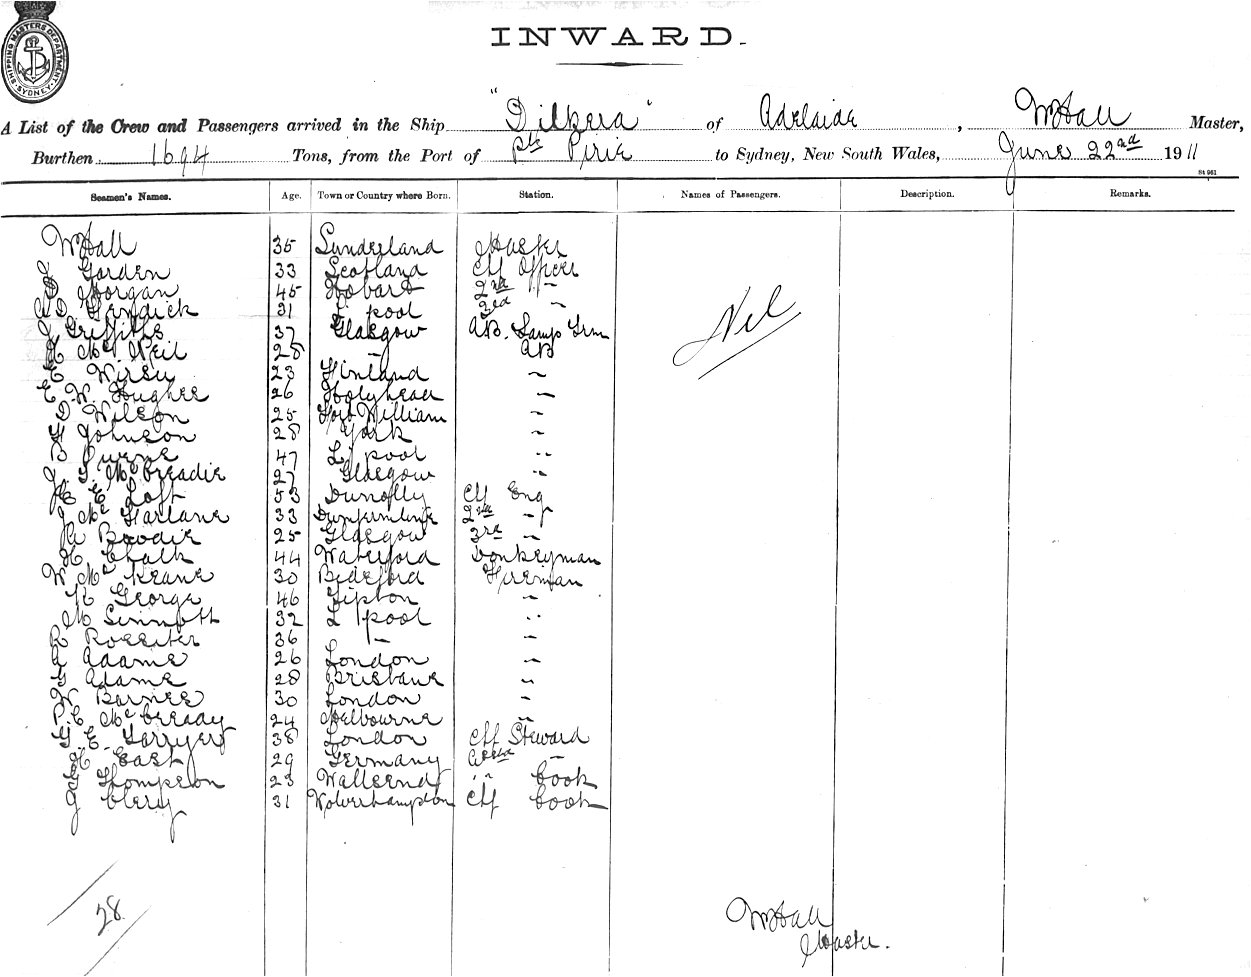 SHIPPING MASTERS DEPARTMENT SYDNEY
INWARD.
A List of the Crew and Passengers arrived in the Ship "Dilkera" of Adelaide, W Hall Master,
Burthen 1694 Tons, from the Port of Pt Pirie to Sydney, New South Wales, June 22nd 1911
St 961
Seamen's Names. Age. Town or Country where Born. Station. Names of Passengers. Description. Remarks.
W Hall 35 Sunderland Master
J Gorden 33 Scotland Chf Officer
D Morgan 45 Hobart 2nd "
31 L'pool 3rd "
J Griffiths 37 Glasgow AB. Lamp Trm
H Mc Neil 28 " AB
E 23 Finland "
E. W. Hughes 26 Holyhead "
D Wilson 25 Fort William "
H Johnson 28 York "
47 L'pool "
J. S. McCreadie 27 Glasgow "
H E Loft 53 Dunolly Chf Eng
J McFarlane 33 Dunfermline 2nd "
R Brodie 25 Glasgow 3rd "
H Chalk 44 Waterford Donkeyman
W Mc Keane 30 Bideford Fireman
K George 46 Tipton "
M Sinnott 32 L'pool "
R Rossiter 36 " "
A Adams 26 London "
G Adams 28 Brisbane "
W Barnes 30 London "
P. C McCready 24 Melbourne "
G. E. 38 London Chf Steward
H East 29 Germany "
G Thompson 23 Wallsend " Cook
J Clery 31 Wolverhampton Chf Cook
Nil
28
W Hall
Master.